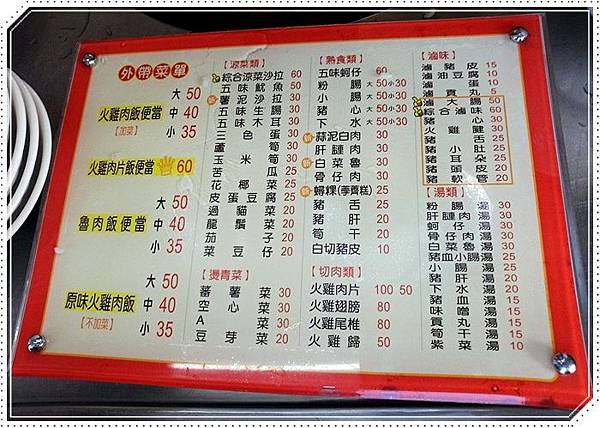 外帶菜單
火雞肉飯便當
【加菜】
大 50
中 40
小 35
火雞肉片飯便當 60
魯肉飯便當
大 50
中 40
小 35
原味火雞肉飯
【不加菜】
大 50
中 40
小 35
【涼菜類】
綜合涼菜沙拉 60
五味魷魚 50
薯泥沙拉 30
五味生腸 30
五味木耳 30
三色蛋 30
蘆筍 30
玉米筍 30
苦瓜 25
花椰菜 25
皮蛋豆腐 25
過貓菜 20
龍鬚菜 20
茄子 20
菜豆仔 20
【燙青菜】
蕃薯菜 30
空心菜 30
A菜 30
豆芽菜 20
【熟食類】
五味蚵仔 60
粉腸 大50小30
小腸 大50小30
豬心 大50小30
下水 大50小30
蒜泥白肉 30
肝腱肉 30
白菜魯 30
骨仔肉 30
蟳粿(季賣糕) 25
豬舌 25
豬肝 20
筍干 20
白切豬皮 10
【切肉類】
火雞肉片 100 50
火雞翅膀 80
火雞尾椎 80
火雞歸 50
【滷味】
滷豬皮 15
滷油豆腐 10
滷蛋 10
滷貢丸 5
滷大腸 50
綜合滷味 60
豬心 35
火雞腱 35
豬舌 35
小肚 35
豬耳朵 25
豬頭皮 25
豬軟管 20
【湯類】
粉腸湯 30
肝腱肉湯 30
蚵仔湯 30
骨仔肉湯 30
白菜魯湯 30
豬血小腸湯 25
小腸湯 25
豬肝湯 20
下水湯 20
豬血湯 15
味噌湯 15
貢丸湯 15
筍干湯 15
紫菜湯 10